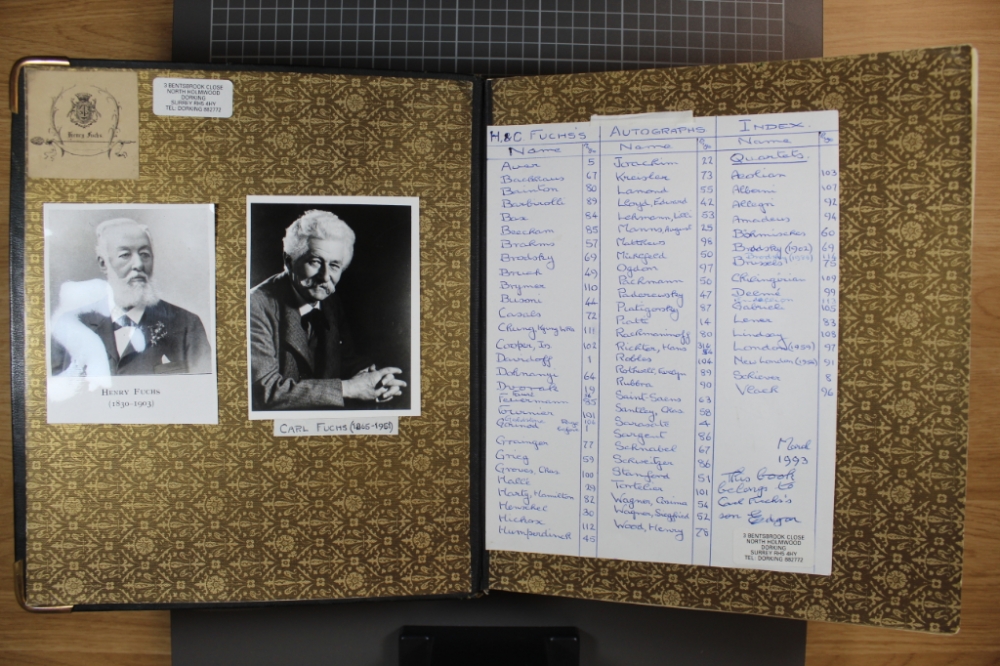 Henry Fuchs
3 BENTSBROOK CLOSE
NORTH HOLMWOOD
DORKING
SURREY RH5 4HY
TEL. DORKING 882772
HENRY FUCHS
(1830-1903)
CARL FUCHS (1865-1951)
H.&C FUCHS'S AUTOGRAPHS INDEX.
Name
Auer 5
Backhaus 67
Bainton 80
Barbirolli 89
Bax 84
Beecham 85
Brahms 57
Brodsky 69
Bruch 49
Brymer 110
Busoni 44
Casals 72
Chung, Kyng Wha 111
Cooper, Is. 102
Davidoff 1
Dohnanyi 64
Dvorak 19
Feuermann 95
Fournier 101
Grainger 77
Grieg 59
Groves, Chas 100
Hallé 29
Harty, Hamilton 82
Henschel 30
Hickox 112
Humperdinck 45
Name
Joachim 22
Kreisler 73
Lamond 55
Lloyd, Edward 42
Lehmann, Lilli 53
Manns, August 25
Matthews 98
Mukgard 50
Ogdon 97
Pachmann 50
Paderewsky 47
Piatigorsky 87
Piatti 14
Rachmaninoff 80
Richter, Hans
Robles 104
Rothwell, Evelyn 89
Rubbra 90
Saint-Saens 63
Santley, Chas 58
Sarasate 4
Sargent 86
Schnabel 67
Schweitzer 86
Stanford 51
Tortelier 101
Wagner, Cosima 54
Wagner, Siegfried 52
Wood, Henry 76
Name
Quartets.
Aeolian 103
Alberni 107
Allegri 92
Amadeus 94
Böhmisches 60
Brodsky (1902) 69
Brussels 75
Chilingirian 109
Delmé 99
Gabrieli 105
Lener 83
Lindsay 108
London (1959) 97
New London (1956) 91
Schiever 8
Vlach 96
March
1993
This book
belongs to
Carl Fuchs's
son Edgar
3 BENTSBROOK CLOSE
NORTH HOLMWOOD
DORKING
SURREY RH5 4HY
TEL. DORKING 882772